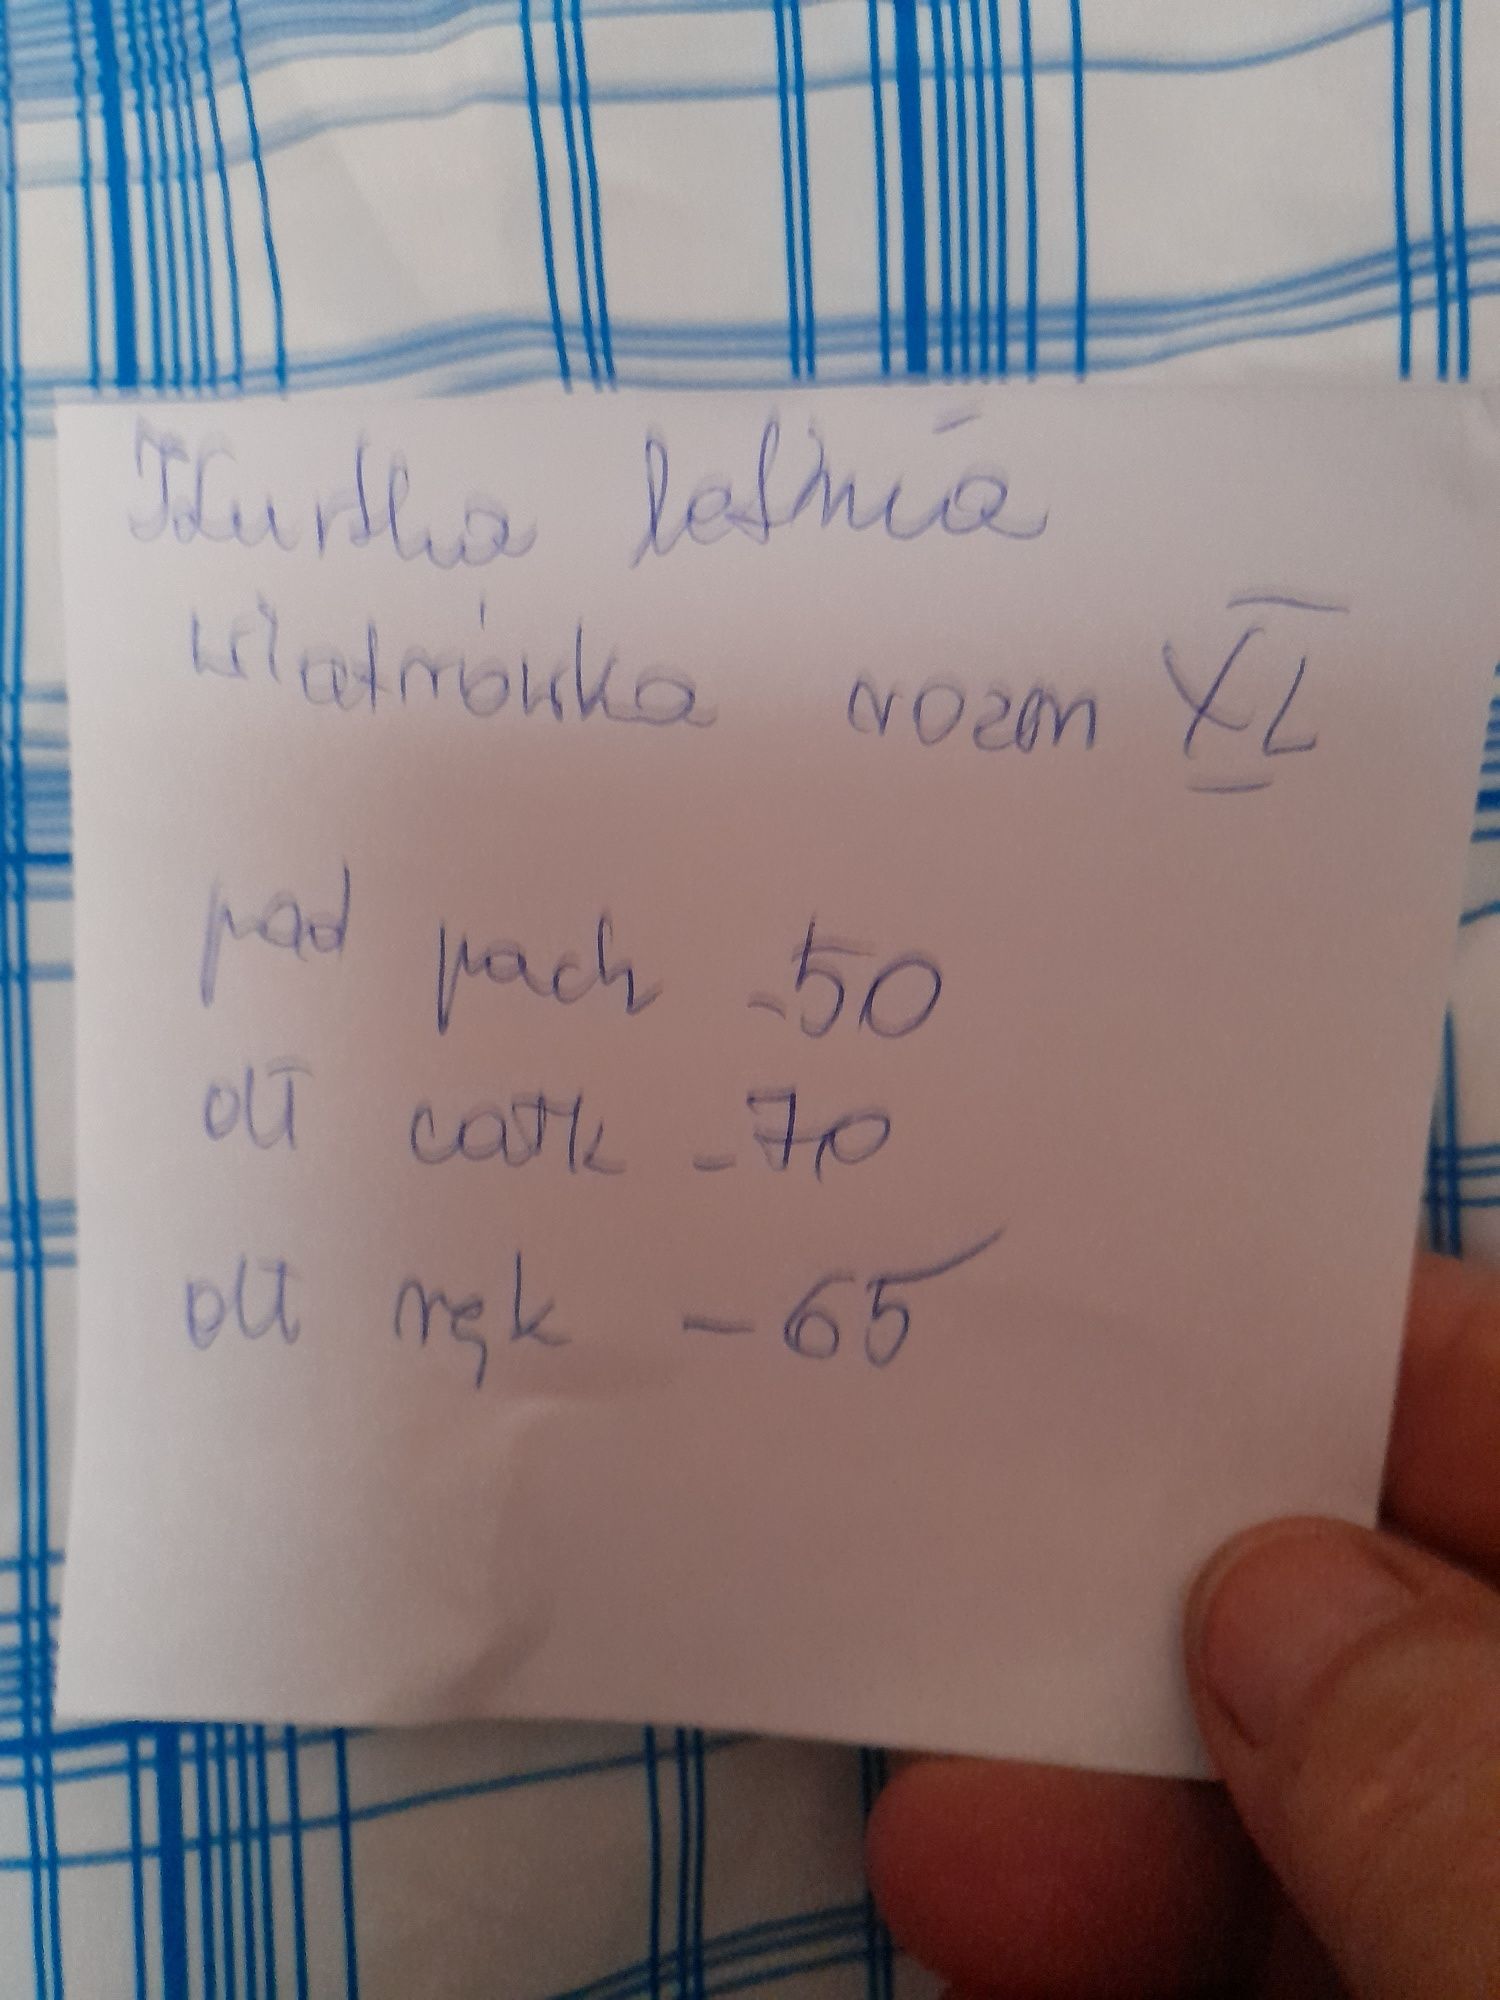 Kurtka letnia
wiatrówka rozm XL
pod pach - 50
dł całk - 70
dł ręk - 65